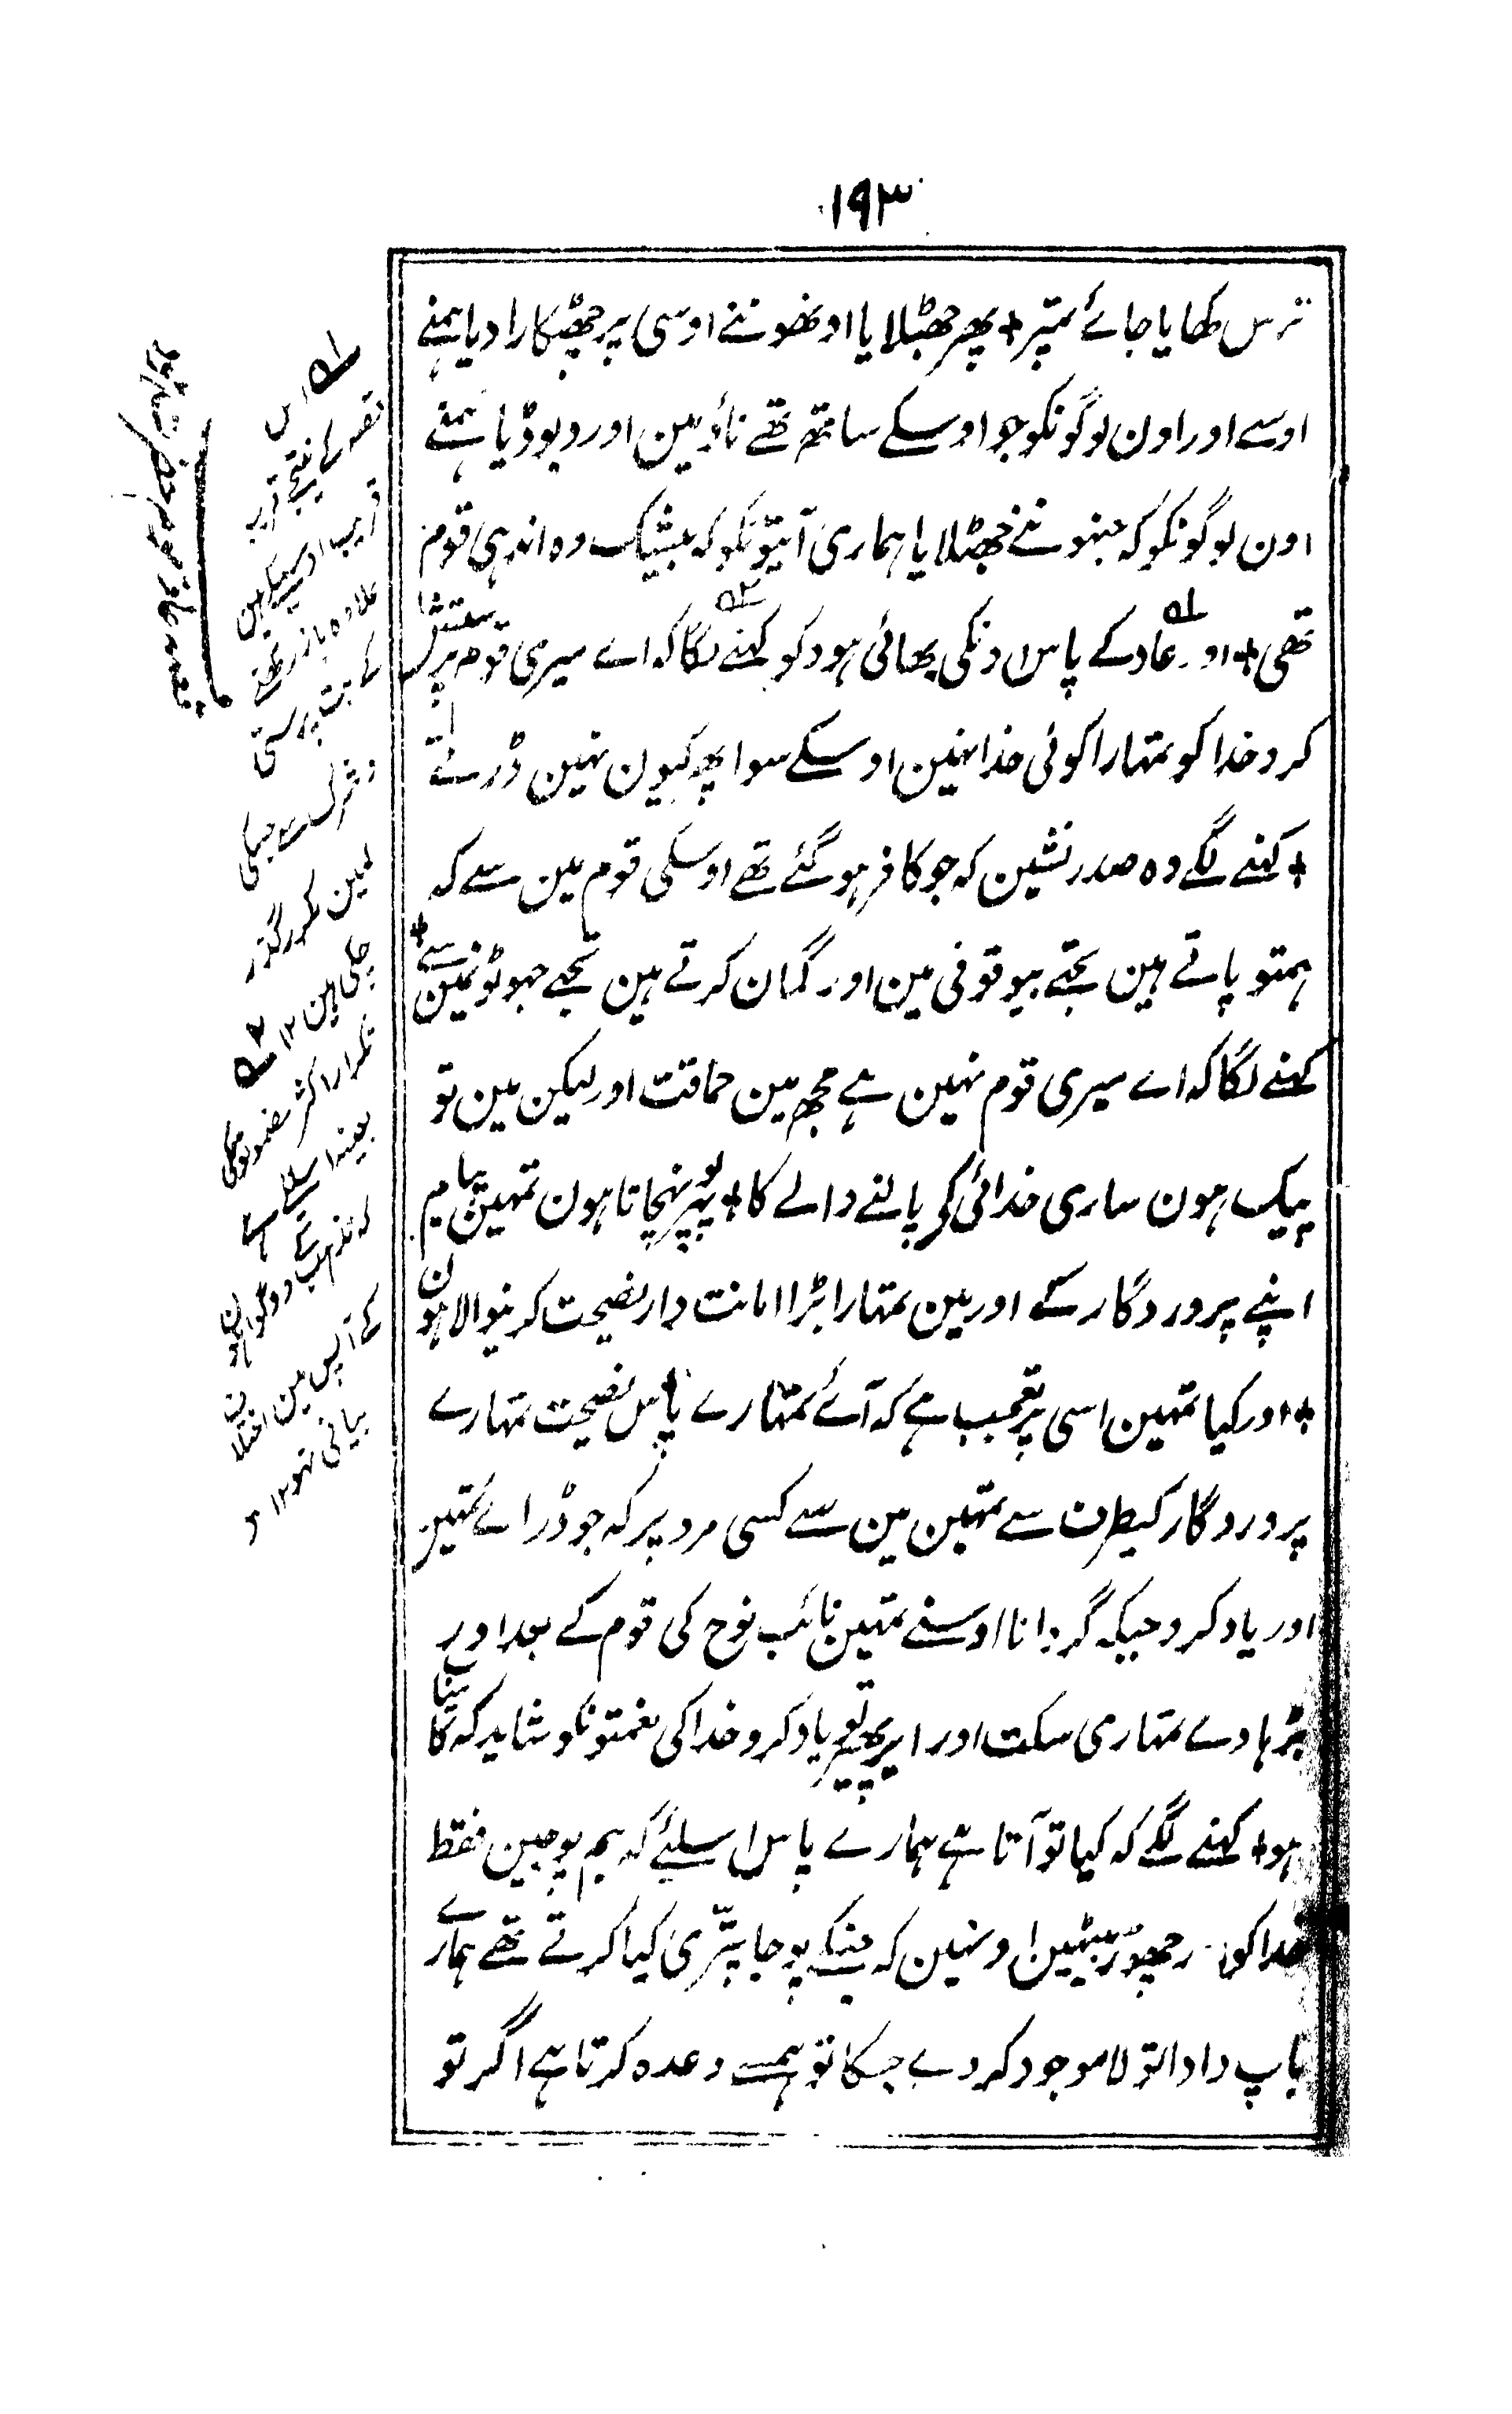 ۱۹۳
ترس کھایا جائے تمپر + پھر جھٹلایا اونھونے اوسی پر چھٹکارا دیا ہمنے
اوسے اور اون لوگونکو جو اوسکے ساتھ تھے ناؤ مین اور ڈبوڈیا ہمنے
اون لوگونکو کہ جنہونے جھٹلایا ہماری آیتونکو کہ بیشک وہ اندہی قوم
تھی + اور عاد کے پاس اونکی بھائی ہود کو کہنے لگا کہ اے میری قوم پرستش
کرو خدا کو تمہارا کوئی خدا نہین اوسکے سوا پھر کیون نہین ڈرتے
+ کہنے لگے وہ صدر نشین کہ جو کافر ہو گئے تھے اوسکی قوم مین سے کہ
ہمتو پاتے ہین تجھے بیوقوفی مین اور گمان کرتے ہین تجھے جہوٹونمین سے +
کہنے لگا کہ اے میری قوم نہین ہے مجھ مین حماقت اور لیکن مین تو
پیک ہون ساری خدائی کے پالنے والے کا + پہنچاتا ہون تمہین پیام
اپنے پروردگار کے اور مین تمہارا بڑا امانت دار نصیحت کرنیوالا ہون
+ اور کیا تمہین اسی پر تعجب ہے کہ آئے تمہارے پاس نصیحت تمہارے
پروردگار کیطرف سے تمہین مین سے کسی مرد پر کہ جو ڈرائے تمہین
اور یاد کرو جبکہ گردانا اوسنے تمہین نائب نوح کی قوم کے بعد اور
بڑہا دے تمہاری سکت اور پھیر یاد کرو خدا کی نعمتونکو شاید کہ کامیاب
ہو + کہنے لگے کہ کیا تو آتا ہے ہمارے پاس اسلئے کہ ہم پوجین فقط
خدا کو اور چھوڑ بیٹہین اونہین کہ جنکے پوجا پتری کیا کرتے تھے ہمارے
باپ دادا تو لا موجود کردے جسکا تو ہمسے وعدہ کرتا ہے اگر تو
۱ اس
قصہ کے نتیجے قریب
قریب اوسیکے ہین
علاوہ باز رکھنے
کے بت پرستی
و شرک سے جنکی
مکرر گذر
چکی ہین ۱۲ ۲
تکرار اکثر مضمونونکی
بعینہ اسلئے ہے
کہ
کے آپس مین اختلاف
بیانی نہو ۱۲